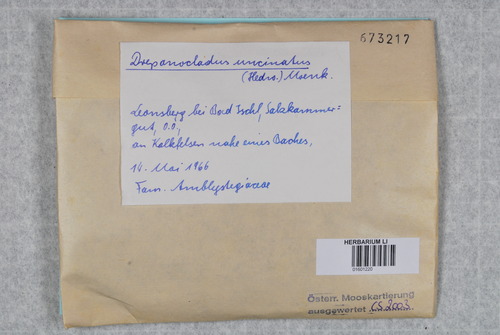 673217
Drepanocladus uncinatus
(Hedw.) Moenk.
Leonsberg bei Bad Ischl, Salzkammer=
gut, O.Ö.,
an Kalkfelsen nahe eines Baches,
14. Mai 1966
Fam. Amblystegiaceae
HERBARIUM LI
01601220
Österr. Mooskartierung
ausgewertet CS 2003